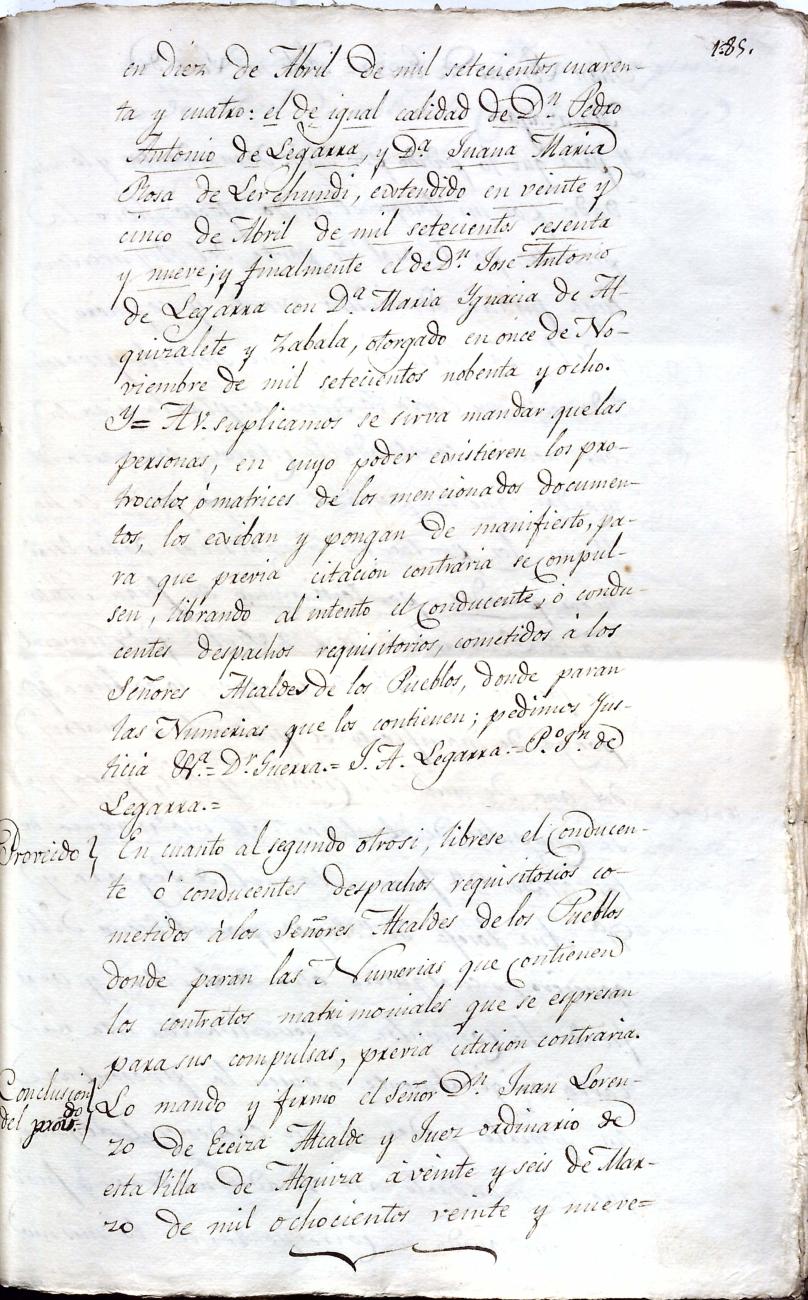 185.
en diez de Abril de mil setecientos cuaren-
ta y cuatro: el de igual calidad de Dn. Pedro
Antonio de Legarra, y Da. Juana Maria
Rosa de Lerchundi, extendido en veinte y
cinco de Abril de mil setecientos sesenta
y nueve; y finalmente el de Dn. Jose Antonio
de Legarra con Da. Maria Ygnacia de Al-
quizalete y Zabala, otorgado en once de No-
viembre de mil setecientos nobenta y ocho.
Y= A V. suplicamos se sirva mandar que las
personas, en cuyo poder existieren los pro-
trocolos ó matrices de los mencionados documen-
tos, los exiban y pongan de manifiesto, pa-
ra que previa citacion contraria se compul-
sen, librando al intento el conducente, ó condu-
centes despachos requisitorios, cometidos á los
Señores Alcaldes de los Pueblos, donde paran
las Numerias que los contienen; pedimos Jus-
ticia &a.= Dr. Guerra.= J. A. Legarra.= Po. Jn. de
Legarra.=
Proveido } En cuanto al segundo otrosi, librese el conducen-
te ó conducentes despachos requisitorios co-
metidos á los Señores Alcaldes de los Pueblos
donde paran las Numerias que contienen
los contratos matrimoniales que se espresan
para sus compulsas, previa citacion contraria.
Conclusion
del provdo.=
Lo mando y firmo el Señor Dn. Juan Loren-
zo de Eceiza Alcalde y Juez ordinario de
esta Villa de Alquiza á veinte y seis de Mar-
zo de mil ochocientos veinte y nueve=